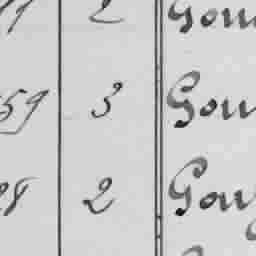 2 Gou
59 3 Gou
28 2 Gou